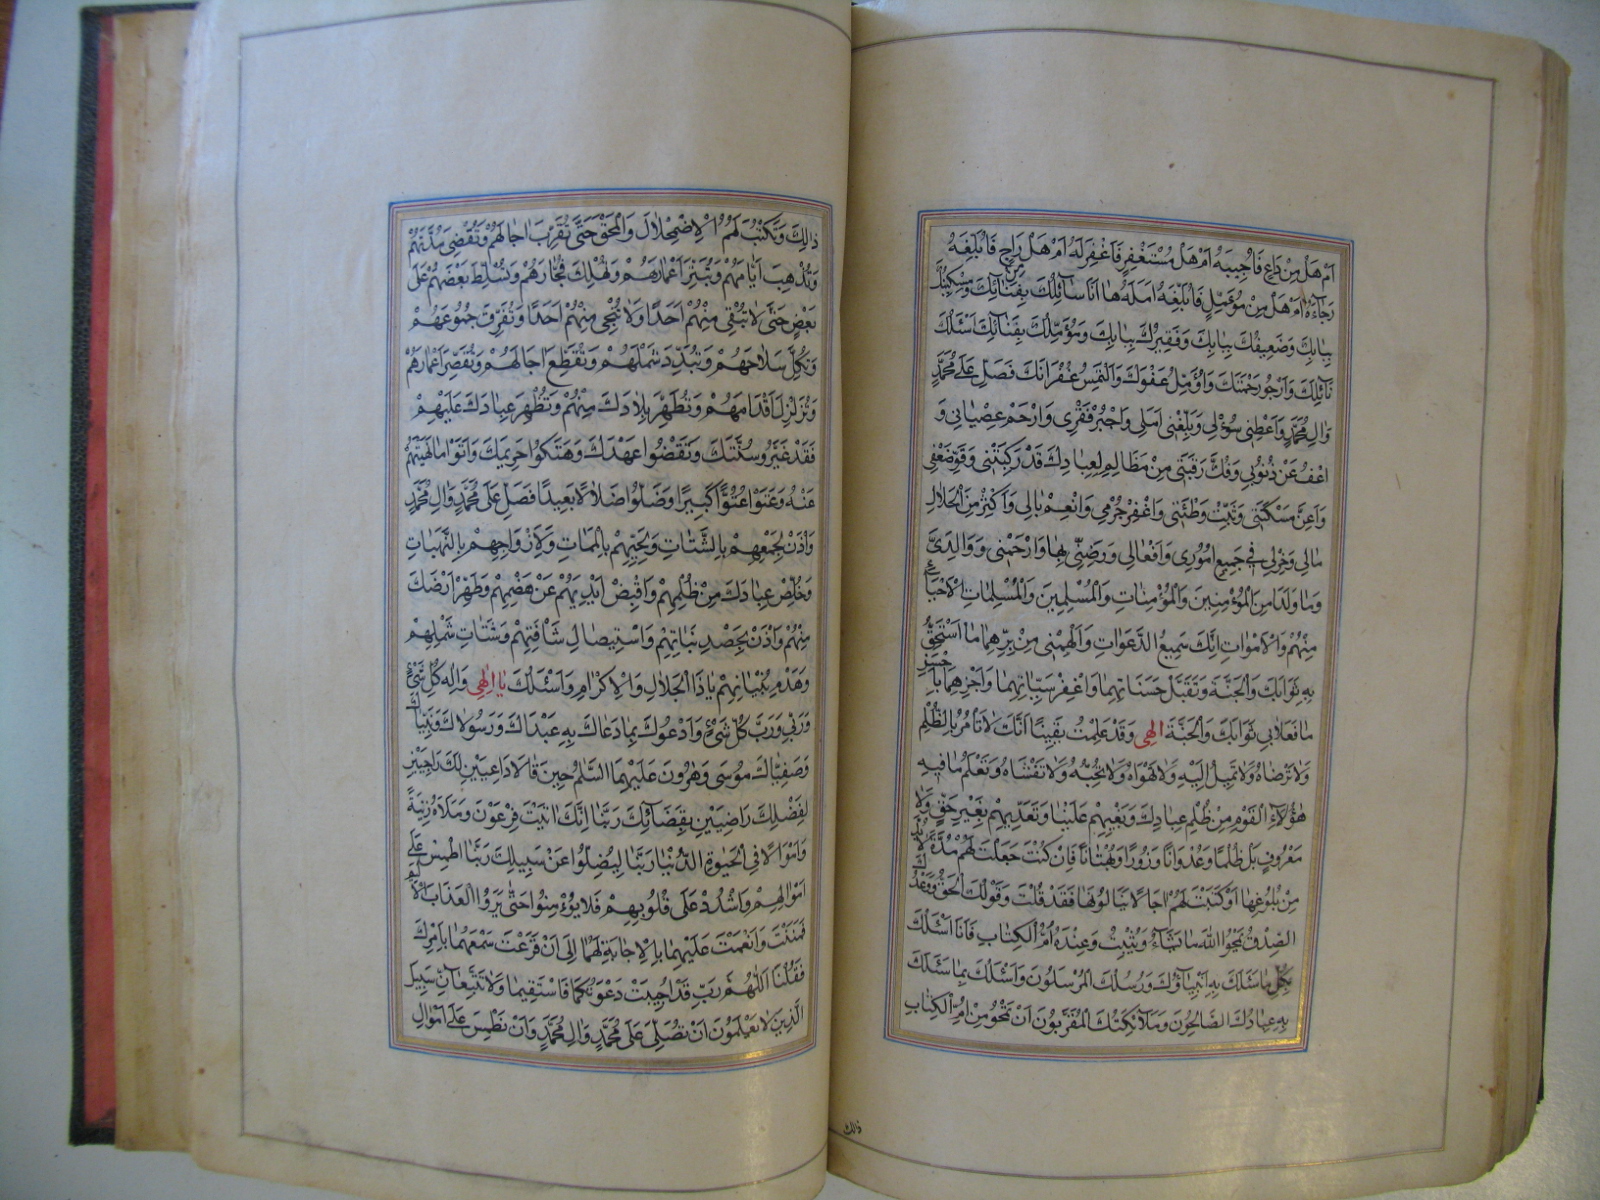 اَمْ هَلْ مِنْ دَاعٍ فَاُجِيبَهُ اَمْ هَلْ مُسْتَغْفِرٍ فَاَغْفِرَ لَهُ اَمْ هَلْ رَاجٍ فَاُبَلِّغَهُ
رَجَاءَهُ اَمْ هَلْ مِنْ مُؤَمِّلٍ فَاُبَلِّغَهُ اَمَلَهُ هَا اَنَا سَائِلُكَ بِفِنَائِكَ وَمِسْكِينُكَ
بِبَابِكَ وَضَعِيفُكَ بِبَابِكَ وَفَقِيرُكَ بِبَابِكَ وَمُؤَمِّلُكَ بِفِنَائِكَ اَسْئَلُكَ
نَائِلَكَ وَاَرْجُو رَحْمَتَكَ وَاُؤَمِّلُ عَفْوَكَ وَاَلْتَمِسُ غُفْرَانَكَ فَصَلِّ عَلَى مُحَمَّدٍ
وَالِ مُحَمَّدٍ وَاَعْطِنِي سُؤْلِي وَبَلِّغْنِي اَمَلِي وَاجْبُرْ فَقْرِي وَارْحَمْ عِصْيَانِي وَ
اعْفُ عَنْ ذُنُوبِي وَفُكَّ رَقَبَتِي مِنْ مَظَالِمٍ لِعِبَادِكَ قَدْ رَكِبَتْنِي وَقَوِّ ضَعْفِي
وَاَعِزَّ مَسْكَنَتِي وَثَبِّتْ وَطْئَتِي وَاغْفِرْ جُرْمِي وَاَنْعِمْ بَالِي وَاَكْثِرْ مِنَ الْحَلَالِ
مَالِي وَخِرْ لِي فِي جَمِيعِ اُمُورِي وَاَفْعَالِي وَرَضِّنِي بِهَا وَارْحَمْنِي وَوَالِدَيَّ
وَمَا وَلَدَا مِنَ الْمُؤْمِنِينَ وَالْمُؤْمِنَاتِ وَالْمُسْلِمِينَ وَالْمُسْلِمَاتِ الْاَحْيَاءِ
مِنْهُمْ وَالْاَمْوَاتِ اِنَّكَ سَمِيعُ الدَّعَوَاتِ وَاَلْهِمْنِي مِنْ بِرِّهِمَا مَا اَسْتَحِقُّ
بِهِ ثَوَابَكَ وَالْجَنَّةَ وَتَقَبَّلْ حَسَنَاتِهِمَا وَاغْفِرْ سَيِّئَاتِهِمَا وَاجْزِهِمَا بِاَحْسَنِ
مَا فَعَلَا بِي ثَوَابَكَ وَالْجَنَّةَ اِلٰهِي وَقَدْ عَلِمْتُ يَقِينًا اَنَّكَ لَا تَاْمُرُ بِالظُّلْمِ
وَلَا تَرْضَاهُ وَلَا تَمِيلُ اِلَيْهِ وَلَا تَهْوَاهُ وَلَا تُحِبُّهُ وَلَا تَغْشَاهُ وَتَعْلَمُ مَا فِيهِ
هٰؤُلَاءِ الْقَوْمُ مِنْ ظُلْمِ عِبَادِكَ وَبَغْيِهِمْ عَلَيْنَا وَتَعَدِّيهِمْ بِغَيْرِ حَقٍّ وَلَا
مَعْرُوفٍ بَلْ ظُلْمًا وَعُدْوَانًا وَزُورًا وَبُهْتَانًا فَاِنْ كُنْتَ جَعَلْتَ لَهُمْ مُدَّةً لَابُدَّ
مِنْ بُلُوغِهَا اَوْ كَتَبْتَ لَهُمْ اجَالًا يَنَالُونَهَا فَقَدْ قُلْتَ وَقَوْلُكَ الْحَقُّ وَوَعْدُكَ
الصِّدْقُ يَمْحُوا اللّٰهُ مَا يَشَاءُ وَيُثْبِتُ وَعِنْدَهُ اُمُّ الْكِتَابِ فَاَنَا اَسْئَلُكَ
بِكُلِّ مَا سَئَلَكَ بِهِ اَنْبِيَاؤُكَ وَرُسُلُكَ الْمُرْسَلُونَ وَاَسْئَلُكَ بِمَا سَئَلَكَ
بِهِ عِبَادُكَ الصَّالِحُونَ وَمَلَائِكَتُكَ الْمُقَرَّبُونَ اَنْ تَمْحُوَ مِنْ اُمِّ الْكِتَابِ
ذٰلِكَ
ذٰلِكَ وَتَكْتُبَ لَهُمُ الْاِضْمِحْلَالَ وَالْمَحْقَ حَتّٰى تُقَرِّبَ اجَالَهُمْ وَتَقْضِيَ مُدَّتَهُمْ
وَتُذْهِبَ اَيَّامَهُمْ وَتُبَتِّرَ اَعْمَارَهُمْ وَتُهْلِكَ فُجَّارَهُمْ وَتُسَلِّطَ بَعْضَهُمْ عَلٰى
بَعْضٍ حَتّٰى لَا تُبْقِيَ مِنْهُمْ اَحَدًا وَلَا تُنْجِيَ مِنْهُمْ اَحَدًا وَتُفَرِّقَ جُمُوعَهُمْ
وَتُكِلَّ سِلَاحَهُمْ وَتُبَدِّدَ شَمْلَهُمْ وَتُقَطِّعَ اجَالَهُمْ وَتُقَصِّرَ اَعْمَارَهُمْ
وَتُزَلْزِلَ اَقْدَامَهُمْ وَتُطَهِّرَ بِلَادَكَ مِنْهُمْ وَتُظْهِرَ عِبَادَكَ عَلَيْهِمْ
فَقَدْ غَيَّرُوا سُنَّتَكَ وَنَقَضُوا عَهْدَكَ وَهَتَكُوا حَرِيمَكَ وَاَتَوْا مَا نَهَيْتَهُمْ
عَنْهُ وَعَتَوْا عُتُوًّا كَبِيرًا وَضَلُّوا ضَلَالًا بَعِيدًا فَصَلِّ عَلٰى مُحَمَّدٍ وَالِ مُحَمَّدٍ
وَاْذَنْ لِجَمْعِهِمْ بِالشَّتَاتِ وَلِحَيِّهِمْ بِالْمَمَاتِ وَلِاَزْوَاجِهِمْ بِالنَّهَبَاتِ
وَخَلِّصْ عِبَادَكَ مِنْ ظُلْمِهِمْ وَاقْبِضْ اَيْدِيَهُمْ عَنْ هَضْمِهِمْ وَطَهِّرْ اَرْضَكَ
مِنْهُمْ وَاْذَنْ بِحَصْدِ نَبَاتِهِمْ وَاسْتِيصَالِ شَافَتِهِمْ وَشَتَاتِ شَمْلِهِمْ
وَهَدْمِ بُنْيَانِهِمْ يَا ذَا الْجَلَالِ وَالْاِكْرَامِ وَاَسْئَلُكَ يَا اِلٰهِي وَاِلٰهَ كُلِّ شَيْءٍ
وَرَبِّي وَرَبَّ كُلِّ شَيْءٍ وَاَدْعُوكَ بِمَا دَعَاكَ بِهِ عَبْدَاكَ وَرَسُولَاكَ وَنَبِيَّاكَ
وَصَفِيَّاكَ مُوسٰى وَهٰرُونَ عَلَيْهِمَا السَّلٰمُ حِينَ قَالَا دَاعِيَيْنِ لَكَ رَاجِيَيْنِ
لِفَضْلِكَ رَاضِيَيْنِ بِقَضَائِكَ رَبَّنَا اِنَّكَ اتَيْتَ فِرْعَوْنَ وَمَلَاَهُ زِينَةً
وَاَمْوَالًا فِي الْحَيٰوةِ الدُّنْيَا رَبَّنَا لِيُضِلُّوا عَنْ سَبِيلِكَ رَبَّنَا اطْمِسْ عَلٰى
اَمْوَالِهِمْ وَاشْدُدْ عَلٰى قُلُوبِهِمْ فَلَا يُؤْمِنُوا حَتّٰى يَرَوُا الْعَذَابَ الْاَلِيمَ
فَمَنَنْتَ وَاَنْعَمْتَ عَلَيْهِمَا بِالْاِجَابَةِ لَهُمَا اِلٰى اَنْ قَرَعْتَ سَمْعَهُمَا بِاَمْرِكَ
فَقُلْتَ اللّٰهُمَّ رَبِّ قَدْ اُجِيبَتْ دَعْوَتُكُمَا فَاسْتَقِيمَا وَلَا تَتَّبِعَانِّ سَبِيلَ
الَّذِينَ لَا يَعْلَمُونَ اَنْ تُصَلِّيَ عَلٰى مُحَمَّدٍ وَالِ مُحَمَّدٍ وَاَنْ تَطْمِسَ عَلٰى اَمْوَالِ